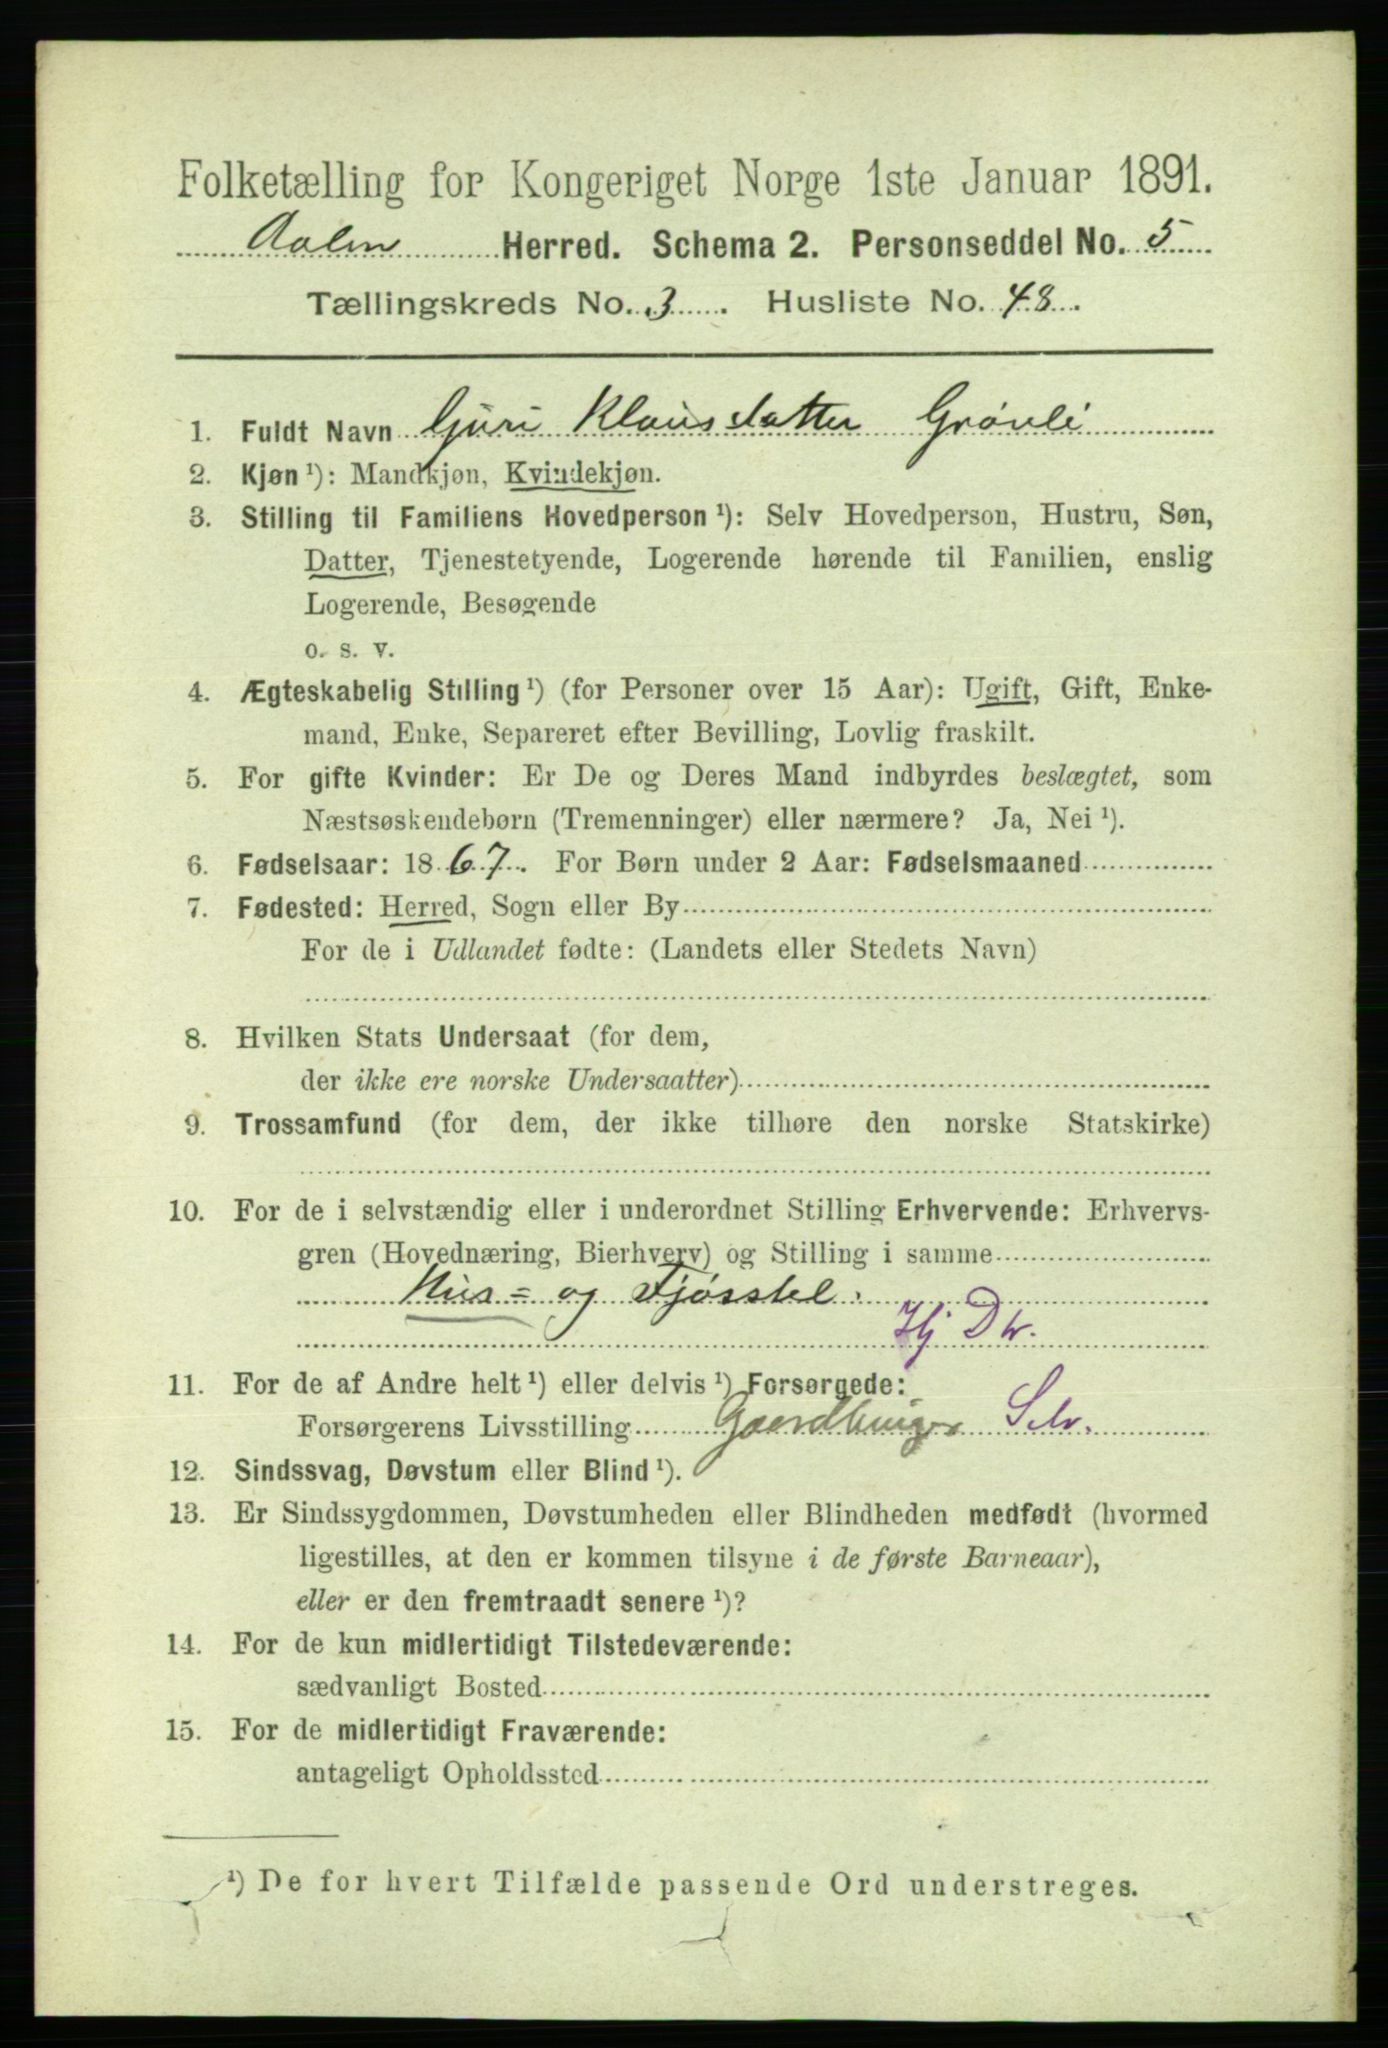 Folketælling for Kongeriget Norge 1ste Januar 1891.
Aalen Herred. Schema 2. Personseddel No. 5
Tællingskreds No. 3. Husliste No. 48.
1. Fuldt Navn Guri Klausdatter Grönli
2. Kjøn ¹): Mandkjøn, Kvindekjøn.
3. Stilling til Familiens Hovedperson ¹): Selv Hovedperson, Hustru, Søn,
Datter, Tjenestetyende, Logerende hørende til Familien, enslig
Logerende, Besøgende
o. s. v.
4. Ægteskabelig Stilling ¹) (for Personer over 15 Aar): Ugift, Gift, Enke-
mand, Enke, Separeret efter Bevilling, Lovlig fraskilt.
5. For gifte Kvinder: Er De og Deres Mand indbyrdes beslægtet, som
Næstsøskendebørn (Tremenninger) eller nærmere? Ja, Nei ¹).
6. Fødselsaar: 1867. For Børn under 2 Aar: Fødselsmaaned
7. Fødested: Herred, Sogn eller By
For de i Udlandet fødte: (Landets eller Stedets Navn)
8. Hvilken Stats Undersaat (for dem,
der ikke ere norske Undersaatter)
9. Trossamfund (for dem, der ikke tilhøre den norske Statskirke)
10. For de i selvstændig eller i underordnet Stilling Erhvervende: Erhvervs-
gren (Hovednæring, Bierhverv) og Stilling i samme
Hus= og Fjösstel.
Hj Dtr.
11. For de af Andre helt ¹) eller delvis ¹) Forsørgede:
Forsørgerens Livsstilling Gaardbruger Selv.
12. Sindssvag, Døvstum eller Blind ¹).
13. Er Sindssygdommen, Døvstumheden eller Blindheden medfødt (hvormed
ligestilles, at den er kommen tilsyne i de første Barneaar),
eller er den fremtraadt senere ¹)?
14. For de kun midlertidigt Tilstedeværende:
sædvanligt Bosted
15. For de midlertidigt Fraværende:
antageligt Opholdssted
¹) De for hvert Tilfælde passende Ord understreges.